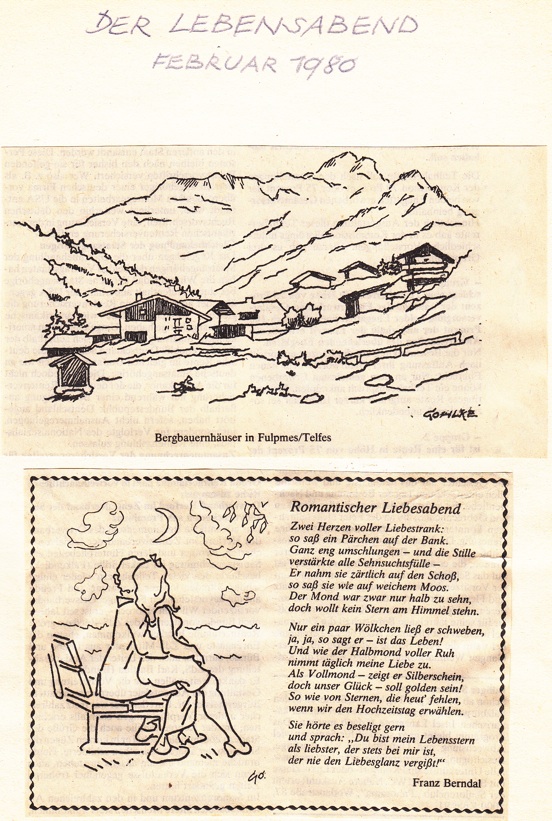 DER LEBENSABEND
FEBRUAR 1980
GOHLKE
Bergbauernhäuser in Fulpmes/Telfes
Romantischer Liebesabend
Zwei Herzen voller Liebestrank:
so saß ein Pärchen auf der Bank.
Ganz eng umschlungen – und die Stille
verstärkte alle Sehnsuchtsfülle –
Er nahm sie zärtlich auf den Schoß,
so saß sie wie auf weichem Moos.
Der Mond war zwar nur halb zu sehn,
doch wollt kein Stern am Himmel stehn.
Nur ein paar Wölkchen ließ er schweben,
ja, ja, so sagt er – ist das Leben!
Und wie der Halbmond voller Ruh
nimmt täglich meine Liebe zu.
Als Vollmond – zeigt er Silberschein,
doch unser Glück – soll golden sein!
So wie von Sternen, die heut' fehlen,
wenn wir den Hochzeitstag erwählen.
Sie hörte es beseligt gern
und sprach: „Du bist mein Lebensstern
als liebster, der stets bei mir ist,
der nie den Liebesglanz vergißt!“
Franz Berndal
GO.